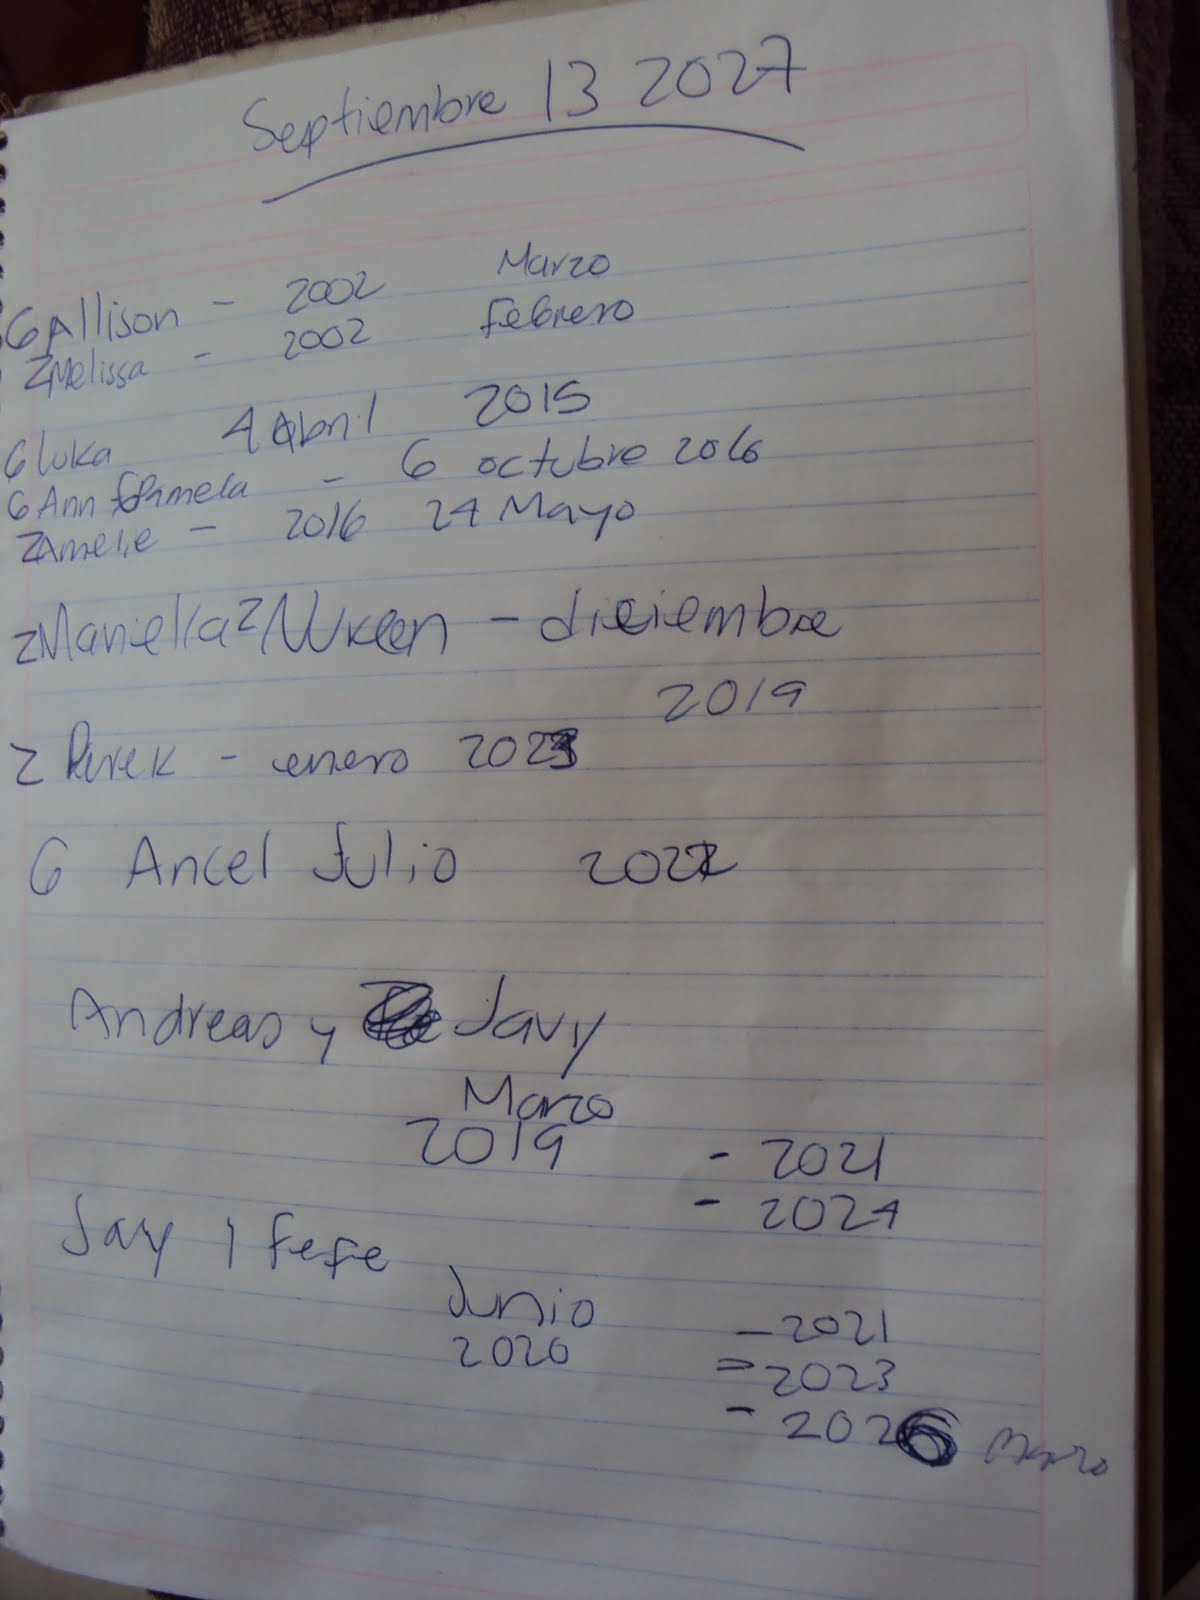 Septiembre 13 2027
G Allison - 2002 Marzo
Z Melissa - 2002 febrero
G luka 4 Abril 2015
G Ann Pamela - 6 octubre 2016
Z Amelie - 2016 24 Mayo
Z Mariella Z - diciembre
2019
Z - enero 2023
G Ancel Julio
Andreas y Javy
Marzo
2019 - 2021
- 2024
Javy y fefe
Junio - 2021
2020 = 2023
- 2026 Marzo